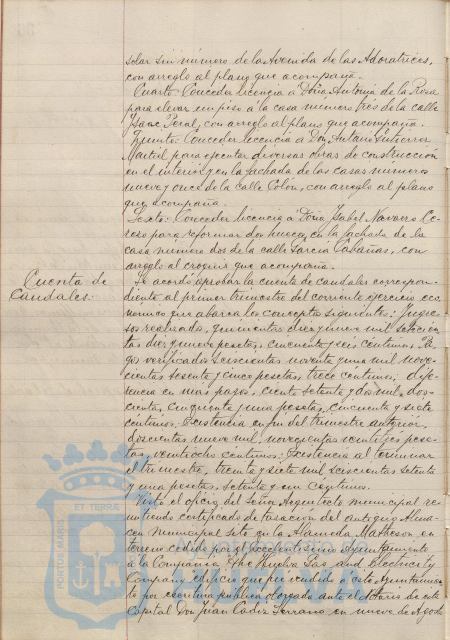 solar sin número de la Avenida de las Adoratrices,
con arreglo al plano que acompaña.
Cuarto: Conceder licencia a Doña Antonia de la Rosa
para elevar un piso á la casa número tres de la calle
Isaac Peral, con arreglo al plano que acompaña.
Quinto: Conceder licencia a Don Antonio Gutiérrez
Martiel para ejecutar diversas obras de construcción
en el interior y en la fachada de las casas números
nueve y once de la calle Colón, con arreglo al plano
que acompaña.
Sexto: Conceder licencia a Doña Isabel Navarro
para reformar dos huecos en la fachada de la
casa número dos de la calle García Cabañas, con
arreglo al croquis que acompaña.
Cuenta de
Caudales.
Se acordó aprobar la cuenta de caudales correspon-
diente al primer trimestre del corriente ejercicio eco-
nómico que abarca los conceptos siguientes: Ingre-
sos realizados, quinientas diez y nueve mil setecien-
tas diez y nueve pesetas, cincuenta y seis céntimos. Pa-
gos verificados seiscientas noventa y una mil nove-
cientas sesenta y cinco pesetas, trece céntimos; dife-
rencia en más pagos, ciento setenta y dos mil dos-
cientas, cincuenta y una pesetas, cincuenta y siete
céntimos: Existencia en fin del trimestre anterior,
doscientas nueve mil, novecientas veintitres pese-
tas, veintiocho céntimos: Existencia al terminar
el trimestre, treinta y siete mil seiscientas setenta
y una pesetas, setenta y un céntimos.
Visto el oficio del Señor Arquitecto municipal re-
mitiendo certificado de tasación del antiguo Alma-
cen municipal sito en la Alameda Matheson en
terreno cedido por el Excelentísimo Ayuntamiento
á la Compañía The Huelva Gas and Electricity
Company edificio que fué vendido á éste Ayuntamien-
to por escritura pública otorgada ante el Notario de esta
Capital Don Juan Cádiz Serrano en nueve de Agos
PORTUS MARIS ET TERRÆ